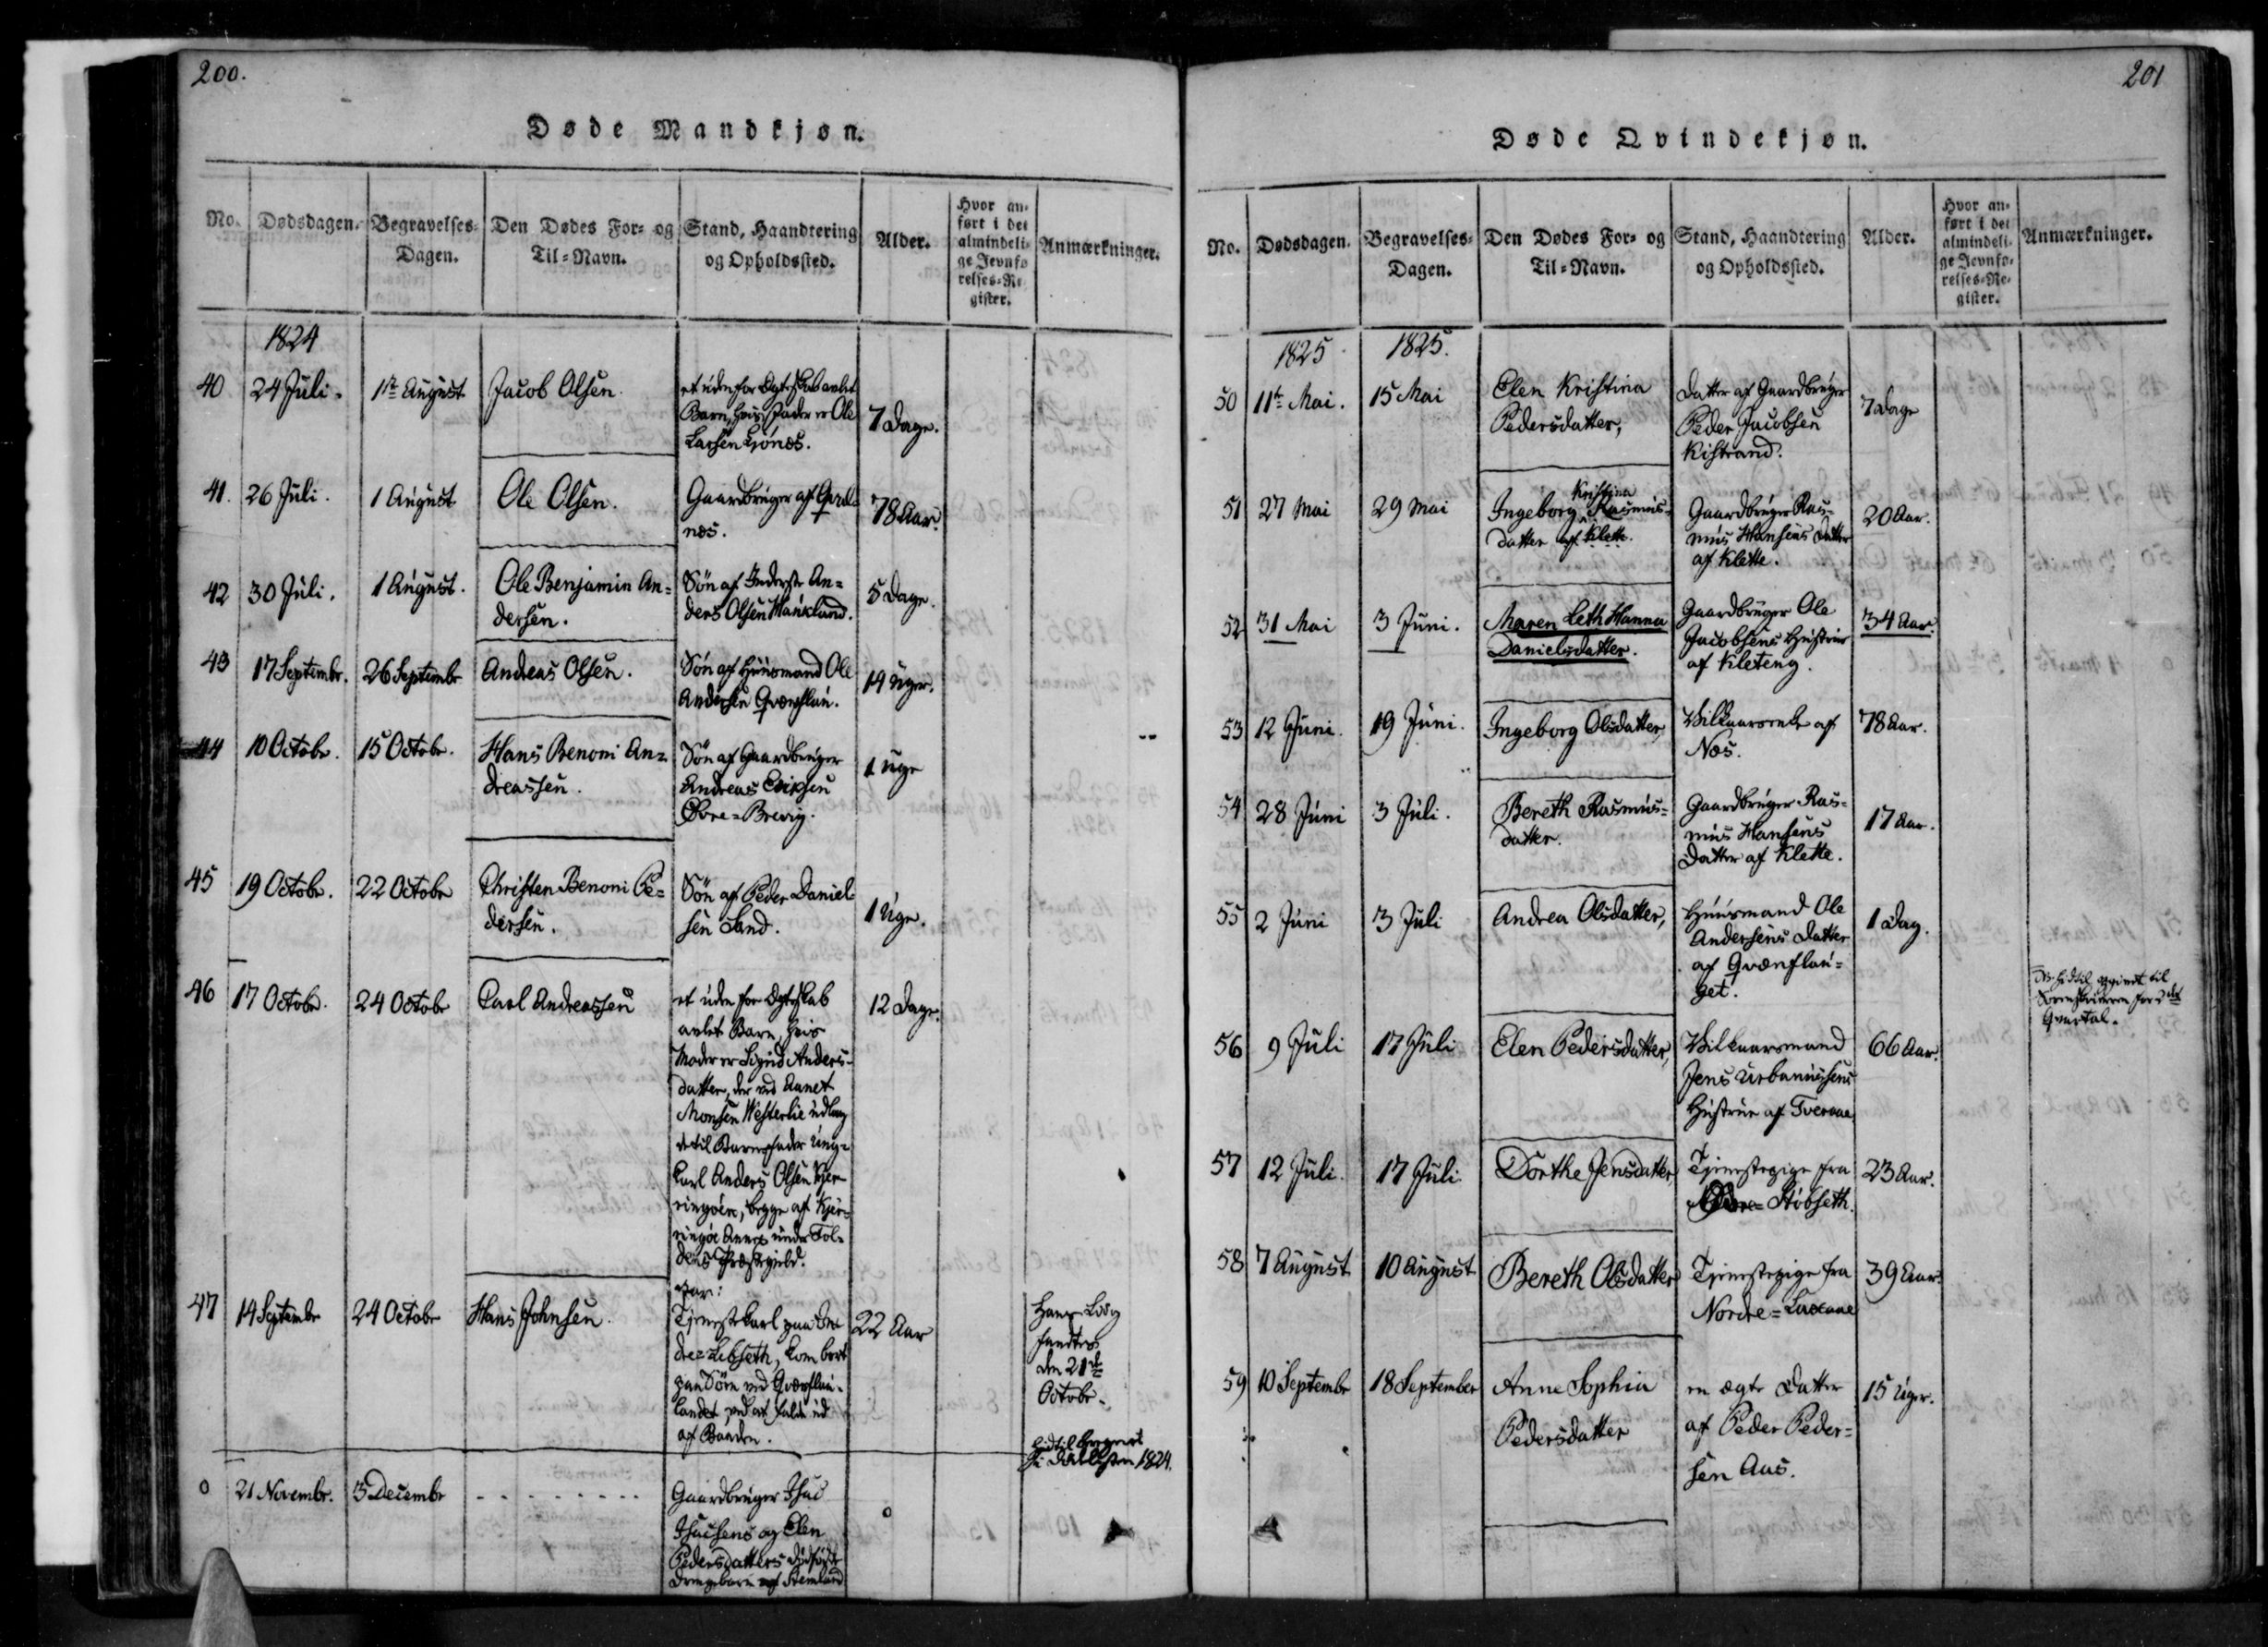 200.
Døde Mandkjøn.
No.
Dødsdagen.
Begravelses-
Dagen.
Den Dødes For- og
Til-Navn.
Stand, Haandtering
og Opholdssted.
Alder.
Hvor an-
ført i det
almindeli-
ge Jevnfø
relses-Re
gister.
Anmærkninger.
1824
40
24 Juli.
1ste August
Jacob Olsen.
et uden for Ægteskab avlet
Barn, hvis Fader er Ole
Larsen
7 Dage.
41.
26 Juli.
1 August
Ole Olsen.
Gaardbruger af
næs.
78 Aar.
42
30 Juli.
1 August.
Ole Benjamin An=
dersen.
Søn af Inderste An=
ders Olsen Haukland.
5 Dage.
43
17 Septembr.
26 Septembr
Andreas Olsen.
Søn af Huusmand Ole
Andersen Qvænflau.
19 Uger.
44
10 Octobr.
15 Octobr.
Hans Benoni An=
dreassen.
Søn af Gaardbruger
Andreas Eriksen
Øvre=Brevig.
1 Uge
45
19 Octobr.
22 Octobr
Christen Benoni Pe=
dersen.
Søn af Peder Daniel
sen Sand.
1 Uge.
46
17 Octobr.
24 Octobr
Carl Andreassen
et uden for Ægteskab
avlet Barn, hvis
Moder er Sigrid Anders=
datter, der ved Annet
Monsen Westerlie udlag
de til Barnefader Ung=
karl Anders Olsen Kjer
ringøen, begge af Kjer=
ringøe Annex under Fol=
dens Præstegield.
12 Dage.
47
14 Septembr
24 Octobr
Hans Johnsen.
var:
Tjenestekarl paa
dre=Løbseth, kom bort
paa Søen ved Qvænflau=
landet ved at falde ud
af Baaden.
22 Aar
Hans Liig
fandtes
den 21de
Octobr.
hidtil beregnet
1824.
0
21 Novembr.
5 Decembr
- - - - - - - -
Gaardbruger Isac
Isacsens og Elen
Pedersdatters dødfødte
Drengebarn af
0
201
Døde Qvindekjøn.
No.
Dødsdagen.
Begravelses-
Dagen.
Den Dødes For- og
Til-Navn.
Stand, Haandtering
og Opholdssted.
Alder.
Hvor an-
ført i det
almindeli-
ge Jevnfø-
relses-Re-
gister.
Anmærkninger.
1825
1825.
50
11te Mai.
15 Mai
Elen Kristina
Pedersdatter,
Datter af Gaardbruger
Peder Jacobsen
Kistrand.
7 Dage
51
27 Mai
29 Mai
Kristina
Ingeborg Rasmus=
datter af Klette.
Gaardbruger Ras=
mus Hansens Datter
af Klette.
20 Aar.
52
31 Mai
3 Juni.
Maren Leth Hanna
Danielsdatter.
Gaardbruger Ole
Jacobsens Hustrue
af Kleteng.
34 Aar.
53
12 Juni.
19 Juni.
Ingeborg Olsdatter,
Vilkaarsenke af
Næs.
78 Aar.
54
28 Juni
3 Juli.
Bereth Rasmus=
datter.
Gaardbruger Ras=
mus Hansens
Datter af Klette.
17 Aar.
55
2 Juni
3 Juli
Andrea Olsdatter,
Huusmand Ole
Andersens Datter
af Qvænflau=
get.
1 Dag.
hidtil opgivet til
Sorenskriveren for 2det
Qvartal.
56
9 Juli
17 Juli
Elen Pedersdatter,
Vilkaarsmand
Jens Urbanussens
Hustrue af Tveraae
66 Aar.
57
12 Juli.
17 Juli.
Dorthe Jensdatter
Tjenestepige fra
Støbseth.
23 Aar.
58
7 August
10 August
Bereth Olsdatter
Tjenestepige fra
Nordre=Laxaae
39 Aar.
59
10 Septembr
18 September
Anne Sophia
Pedersdatter
en ægte Datter
af Peder Peder=
sen Aus.
15 Uger.